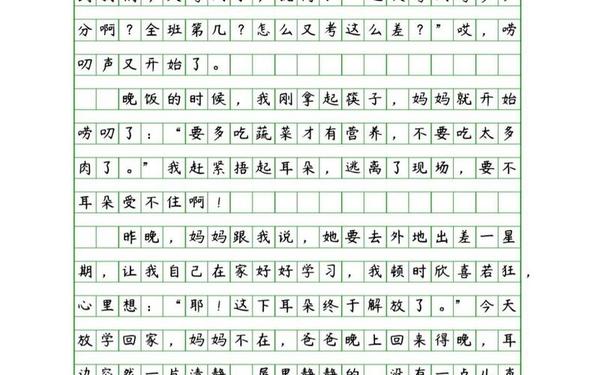 分啊？全班第几？怎么又考这么差？”哎，唠
叨声又开始了。
晚饭的时候，我刚拿起筷子，妈妈就开始
唠叨了：“要多吃蔬菜才有营养，不要吃太多
肉了。”我赶紧捂起耳朵，逃离了现场，要不
耳朵受不住啊！
昨晚，妈妈跟我说，她要去外地出差一星
期，让我自己在家好好学习，我顿时欣喜若狂，
心里想：“耶！这下耳朵终于解放了。”今天
放学回家，妈妈不在，爸爸晚上回来得晚，耳